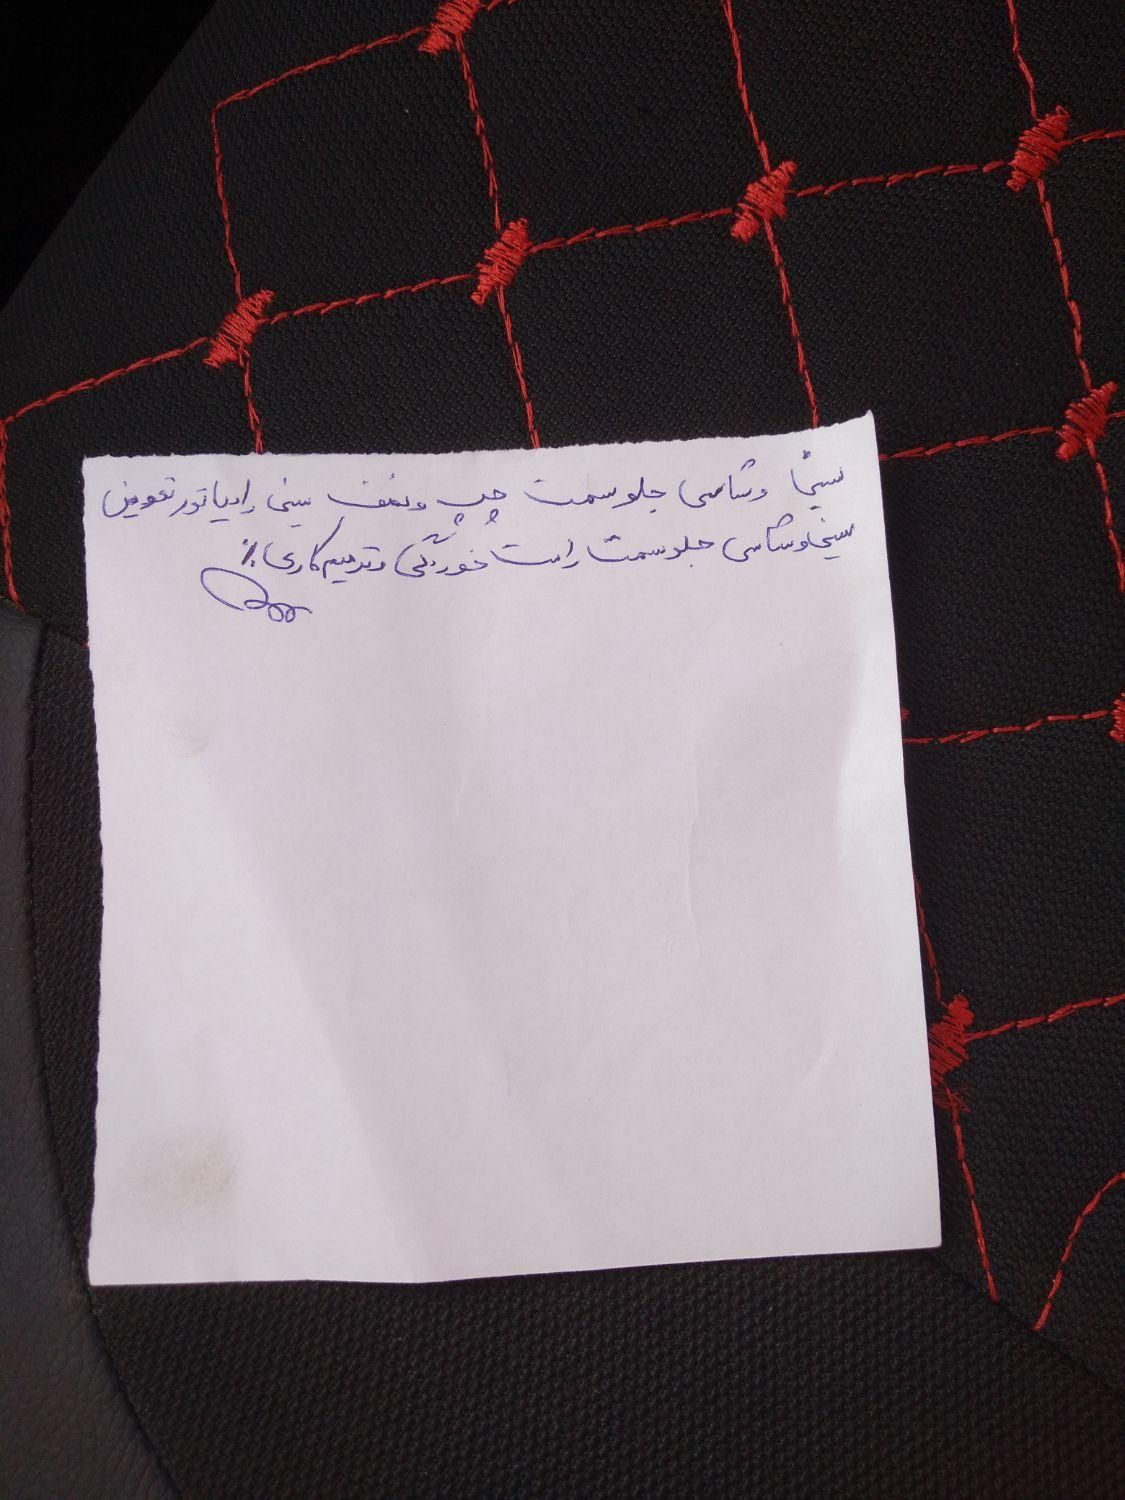 سینی وشاسی جلو سمت چپ ونصف سینی رادیاتور تعویض
سینی وشاسی جلو سمت راست خوردگی وترمیم کاری٪